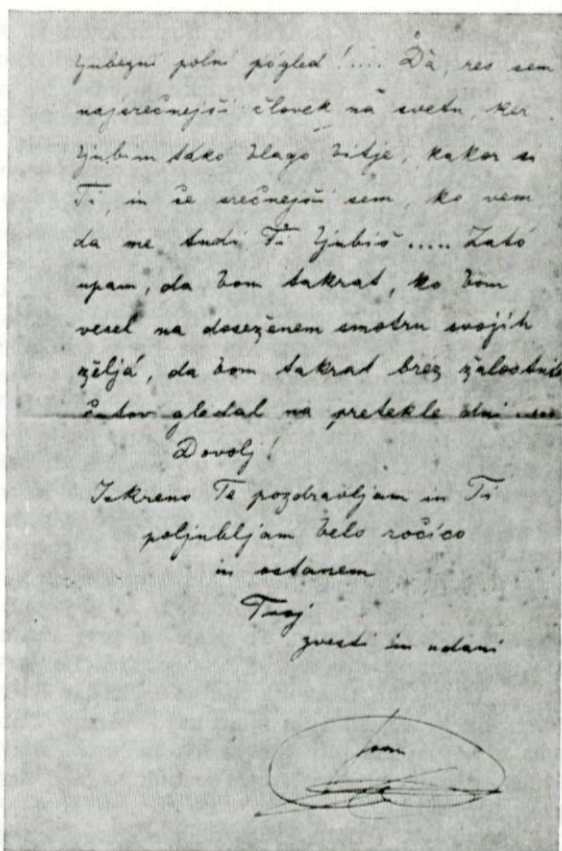 ljubezni polni pógled!.... Dà, res sem
najsrečnejši človek na svetu, ker
ljubim takó blago bitje, kakor si
Ti, in še srečnejši sem, ko vem
da me tudi Ti ljubiš..... Zató
upam, da bom takrat, ko bom
vesel na doseženem smotru svojih
željá, da bom takrat brez žalostnih
čutov gledal na pretekle dni ....
Dovolj!
Iskreno Te pozdravljam in Ti
poljubljam belo ročico
in ostanem
Tvoj
zvesti in udani